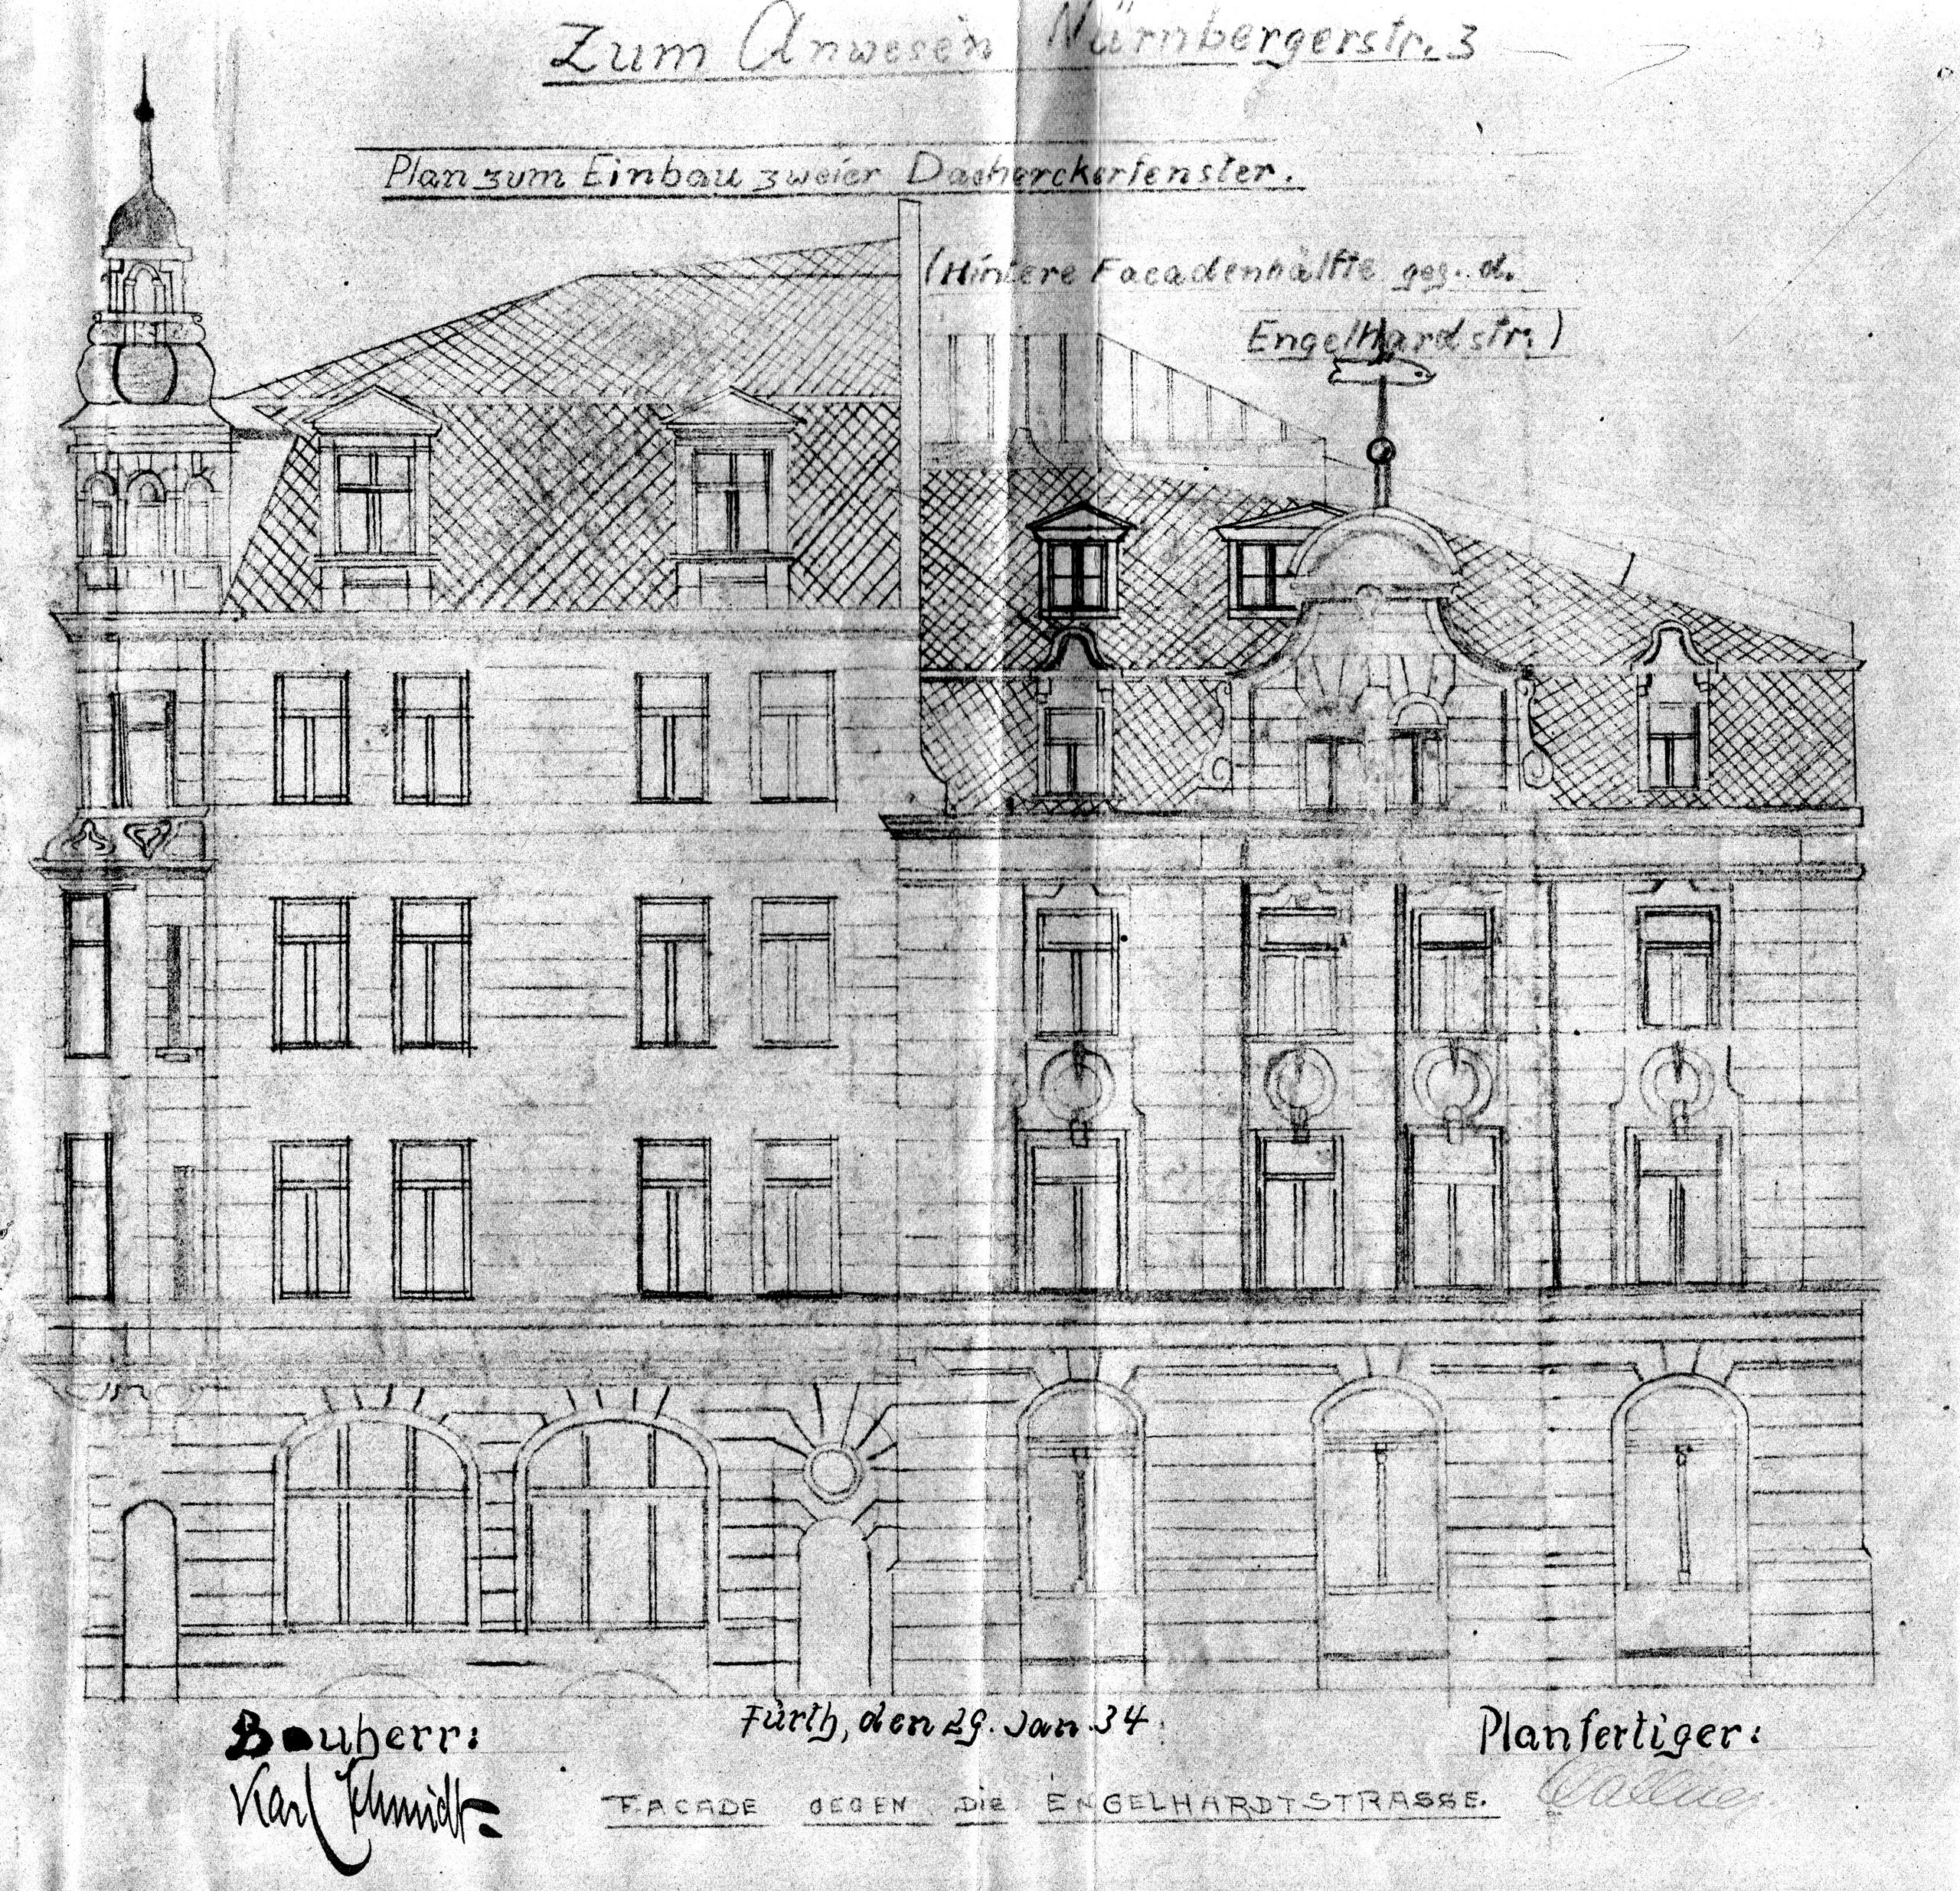 Zum Anwesen Nürnbergerstr. 3
Plan zum Einbau zweier Dacherckerfenster.
(Hintere Facadenhälfte geg. d.
Engelhardstr.)
Bauherr:
Karl Schmidt
Fürth, den 29. Jan 34.
Planfertiger:
FACADE GEGEN DIE ENGELHARDTSTRASSE.